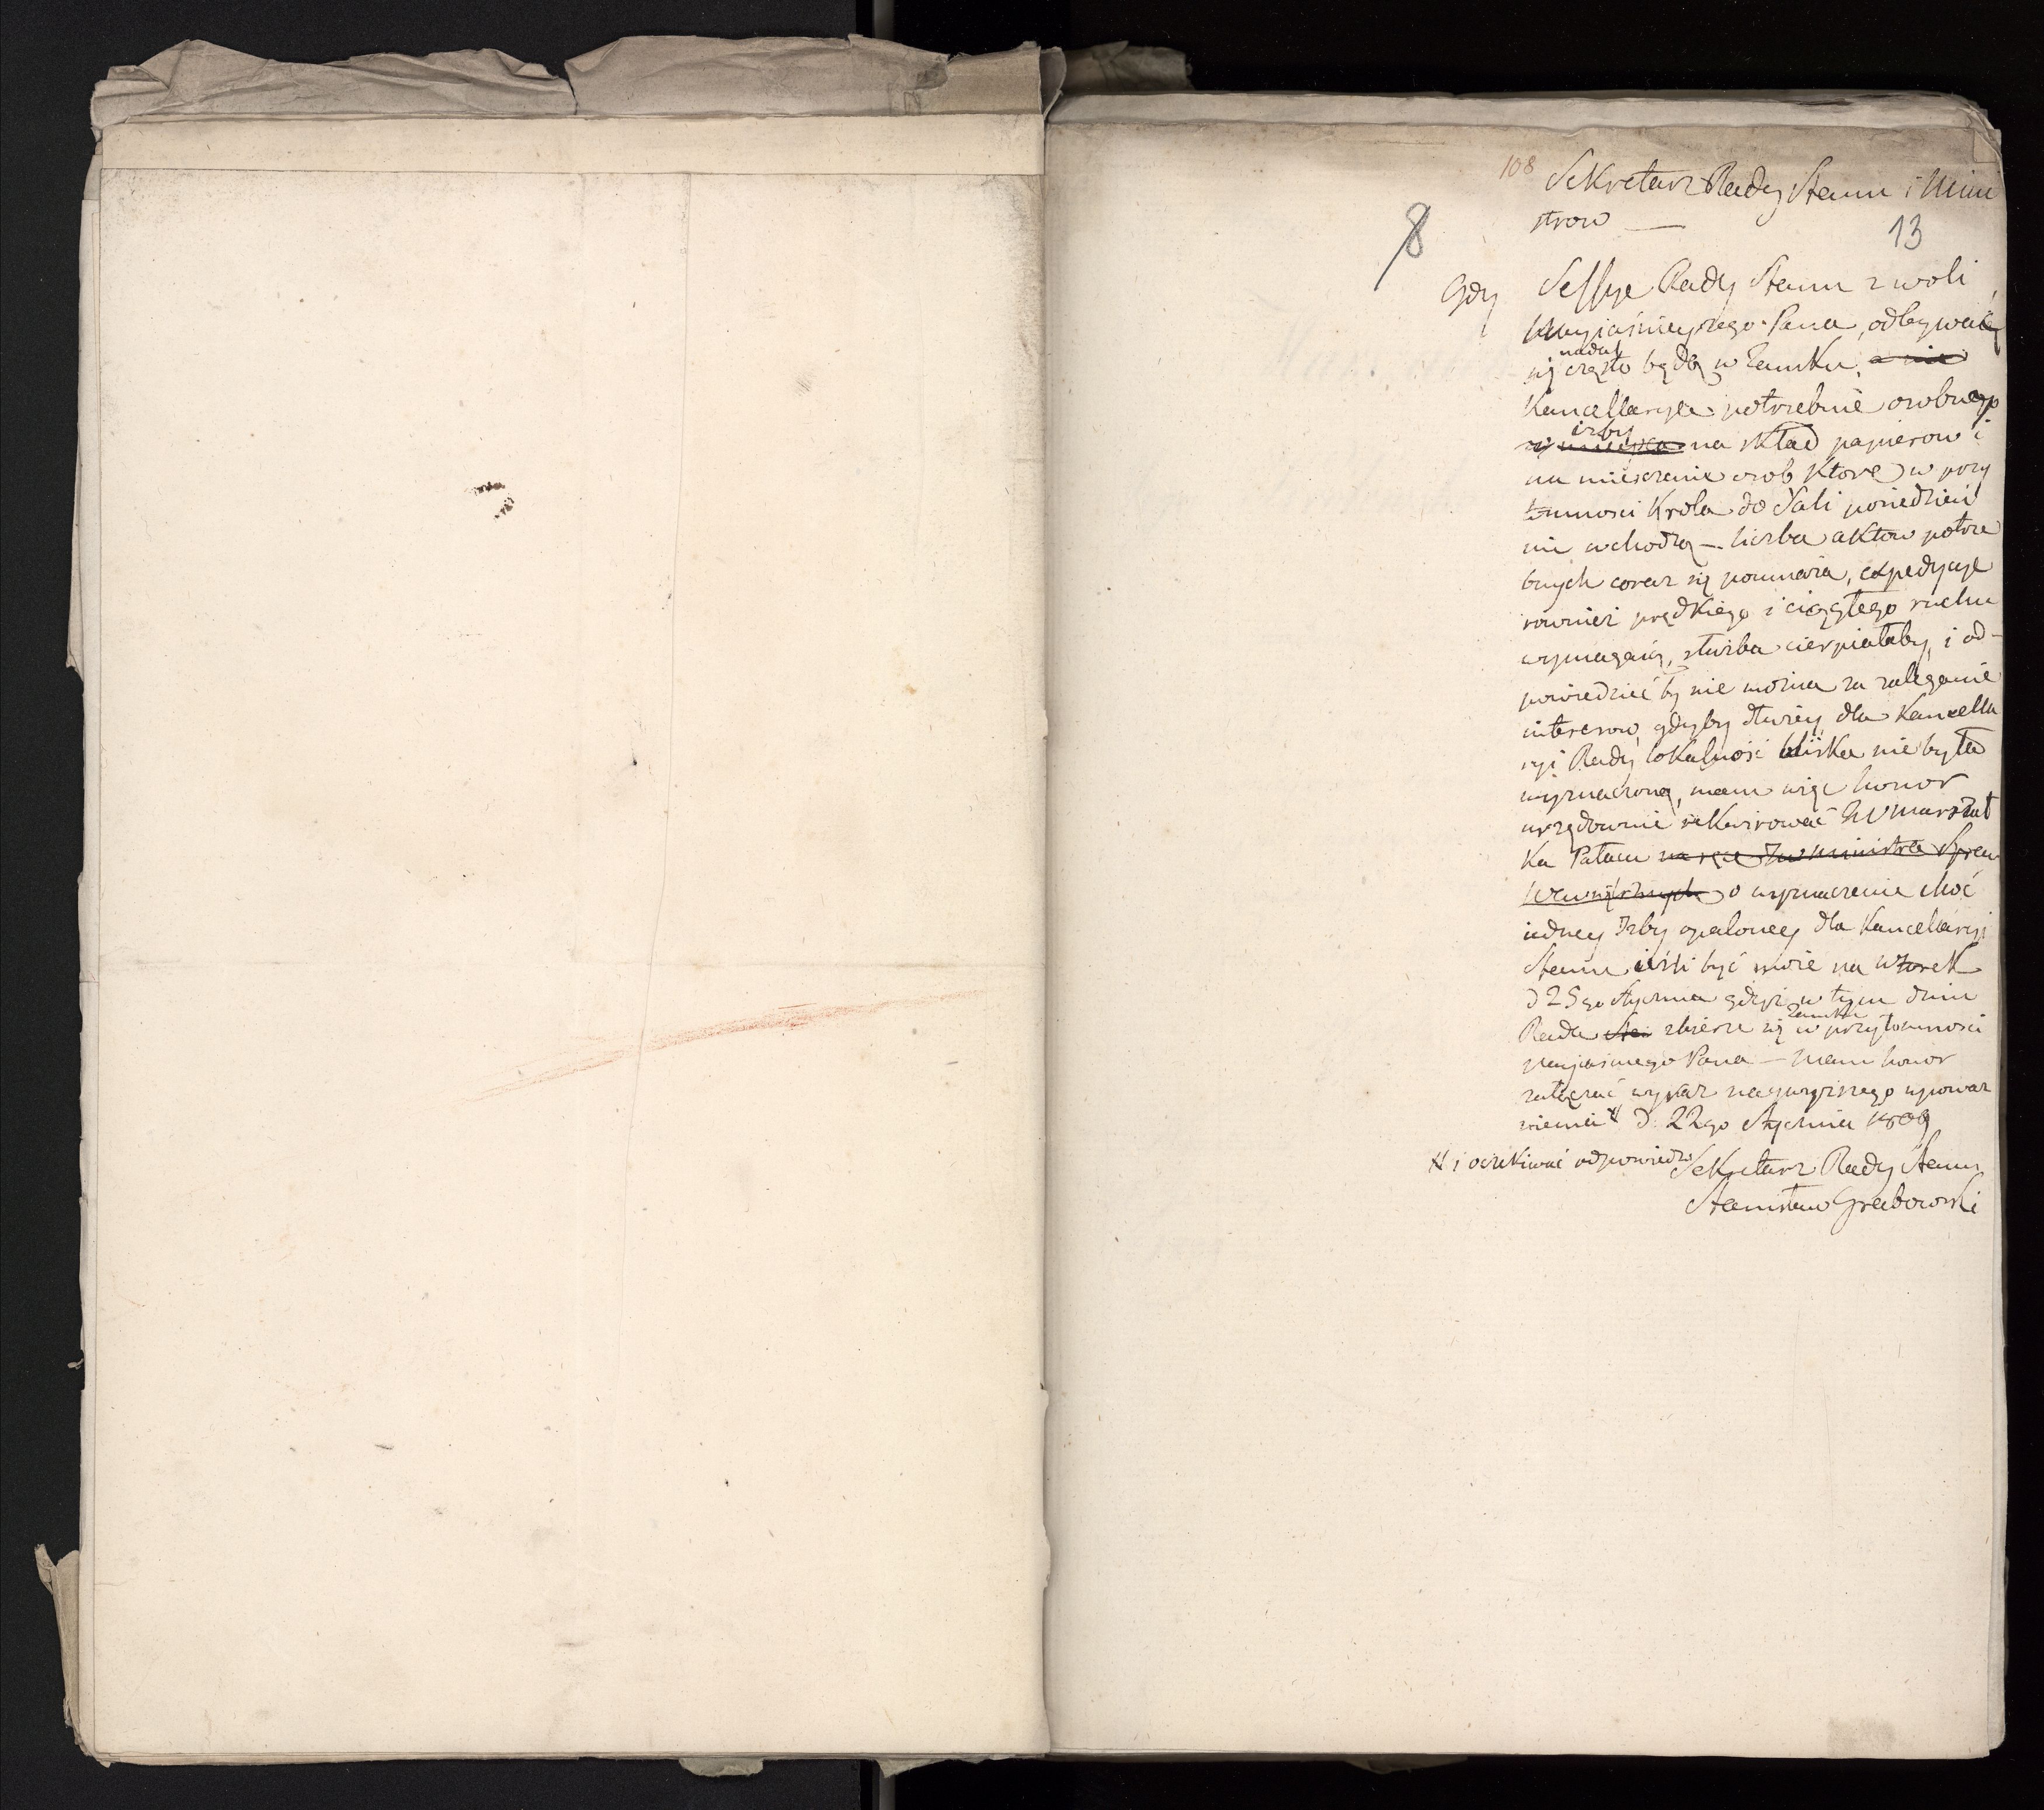 108
Sekretarz Rady Stanu i Mini
strow —
8
13
Gdy Sessye Rady Stanu z woli
Nayiaśnieyszego Pana, odbywać
się nadal często będą w Zamku, a nie
Kancellarya potrzebuie osobney
izby na skład papierow i
na mieszczenie osob ktore w przy
tomnosci Krola do Sali posiedzień
nie wchodzą — liczba aktow potrze
bnych coraz się pomnaża, expedycye
rownież prędkiego i ciągłego ruchu
wymagaią, służba cierpiałaby, i od-
powiedzieć by nie można za zaleganie
interesow, gdyby dłużey dla Kancella
ryi Rady lokalność bliska nie była
wyznaczoną, mam więc honor
urzędownie rekwirować JW Marszał
ka Pałacu na ręce JW Ministra Spraw
Wewnętrznych o wyznaczenie choć
iedney Izby opaloney dla Kancellaryi
Stanu ieśli być może na wtorek
d 25go Stycznia gdyż w tym dniu
Rada Sta zbierze się w Zamku w przytomnosci
Nayiasnego Pana — Mam honor
załączać wyraz naywyższego uszowa
nienia # d. 22go Stycznia 1809
# i oczekiwać odpowiedzi
Sekretarz Rady Stanu
Stanisław Grabowski